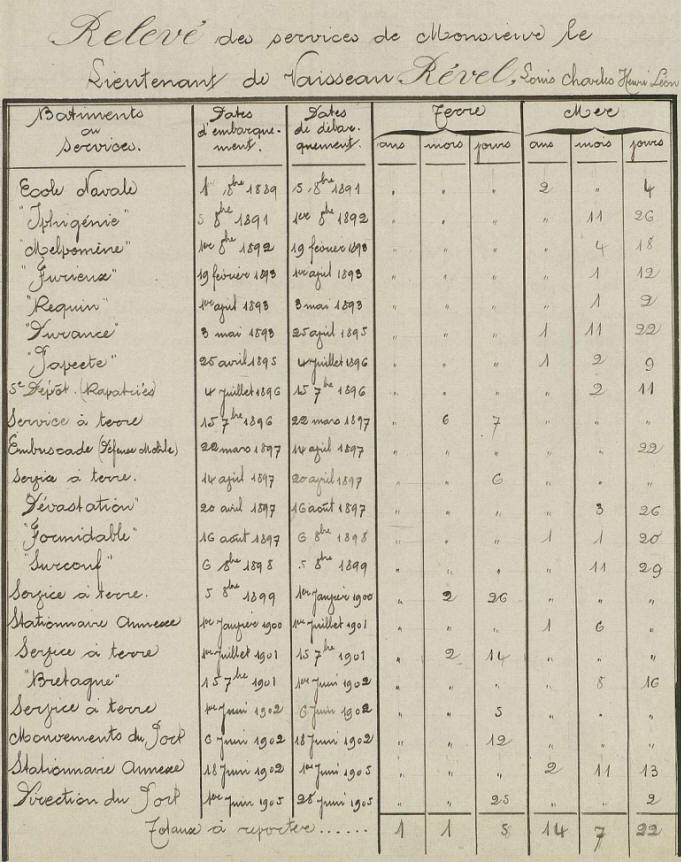 Relevé des services de Monsieur le
Lieutenant de Vaisseau Rével, Louis Charles Henri Léon
Batiments ou Services. Dates d'embarquement. Dates de débarquement. Terre Mer
ans mois jours ans mois jours
Ecole Navale 1er 8bre 1889 5 8bre 1891 " " " 2 " 4
"Iphigénie" 5 8bre 1891 1er 8bre 1892 " " " " 11 26
"Melpomène" 1er 8bre 1892 19 février 1893 " " " " 4 18
"Furieux" 19 février 1893 1er avril 1893 " " " " 1 12
"Requin" 1er avril 1893 3 mai 1893 " " " " 1 2
"Durance" 3 mai 1893 25 avril 1895 " " " 1 11 22
"Japecte" 25 avril 1895 4 juillet 1896 " " " 1 2 9
5e Dépôt. (Rapatriés) 4 juillet 1896 15 7bre 1896 " " " " 2 11
Service à terre 15 7bre 1896 22 mars 1897 " 6 7 " " "
Embuscade (Défense Mobile) 22 mars 1897 14 avril 1897 " " " " " 22
Service à terre. 14 avril 1897 20 avril 1897 " " 6 " " "
Dévastation" 20 avril 1897 16 août 1897 " " " " 3 26
"Formidable" 16 août 1897 6 8bre 1898 " " " 1 1 20
"Surcouf" 6 8bre 1898 5 8bre 1899 " " " " 11 29
Service à terre. 5 8bre 1899 1er janvier 1900 " 2 26 " " "
Stationnaire Annexe 1er janvier 1900 1er juillet 1901 " " " 1 6 "
Service à terre 1er juillet 1901 15 7bre 1901 " 2 14 " " "
"Bretagne" 15 7bre 1901 1er juin 1902 " " " " 8 16
Service à terre 1er juin 1902 6 juin 1902 " " 5 " " "
Mouvements du Port 6 juin 1902 18 juin 1902 " " 12 " " "
Stationnaire Annexe 18 juin 1902 1er juin 1905 " " " 2 11 13
Direction du Port 1er juin 1905 28 juin 1905 " " 25 " " 2
Totaux à reporter...... 1 1 5 14 7 22